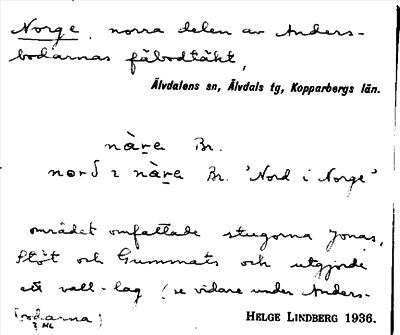 Norge, norra delen av Anders-
bodarnas fäbodtäkt,
Älvdalens sn, Älvdals tg, Kopparbergs län.
nàre Br.
nord i nàre Br. 'Nord i Norge'
området omfattade stugorna Jonas,
Stöt och Gummats och utgjorde
ett vall-lag (se vidare under Anders-
bodarna)
HL
HELGE LINDBERG 1936.